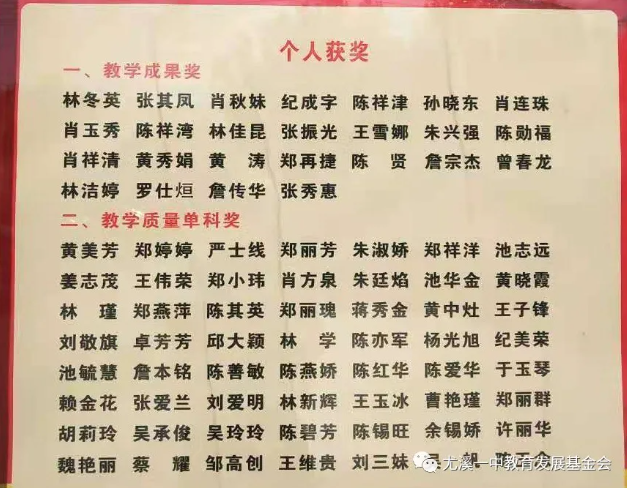 个人获奖
一、教学成果奖
林冬英 张其凤 肖秋妹 纪成字 陈祥津 孙晓东 肖连珠
肖玉秀 陈祥湾 林佳昆 张振光 王雪娜 朱兴强 陈勋福
肖祥清 黄秀娟 黄 涛 郑再捷 陈 贤 詹宗杰 曾春龙
林洁婷 罗仕烜 詹传华 张秀惠
二、教学质量单科奖
黄美芳 郑婷婷 严士线 郑丽芳 朱淑娇 郑祥洋 池志远
姜志茂 王伟荣 郑小玮 肖方泉 朱廷焰 池华金 黄晓霞
林 瑾 郑燕萍 陈其英 郑丽瑰 蒋秀金 黄中灶 王子锋
刘敬旗 卓芳芳 邱大颖 林 学 陈亦军 杨光旭 纪美荣
池毓慧 詹本铭 陈善敏 陈燕娇 陈红华 陈爱华 于玉琴
赖金花 张爱兰 刘爱明 林新辉 王玉冰 曹艳瑾 郑丽群
胡莉玲 吴承俊 吴玲玲 陈碧芳 陈锡旺 余锡娇 许丽华
魏艳丽 蔡 耀 邹高创 王维贵 刘三妹
尤溪一中教育发展基金会